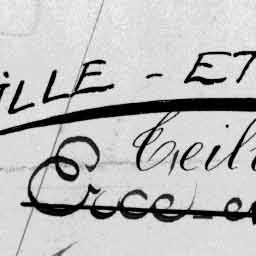 ILLE - ET
Teil
Erce - e